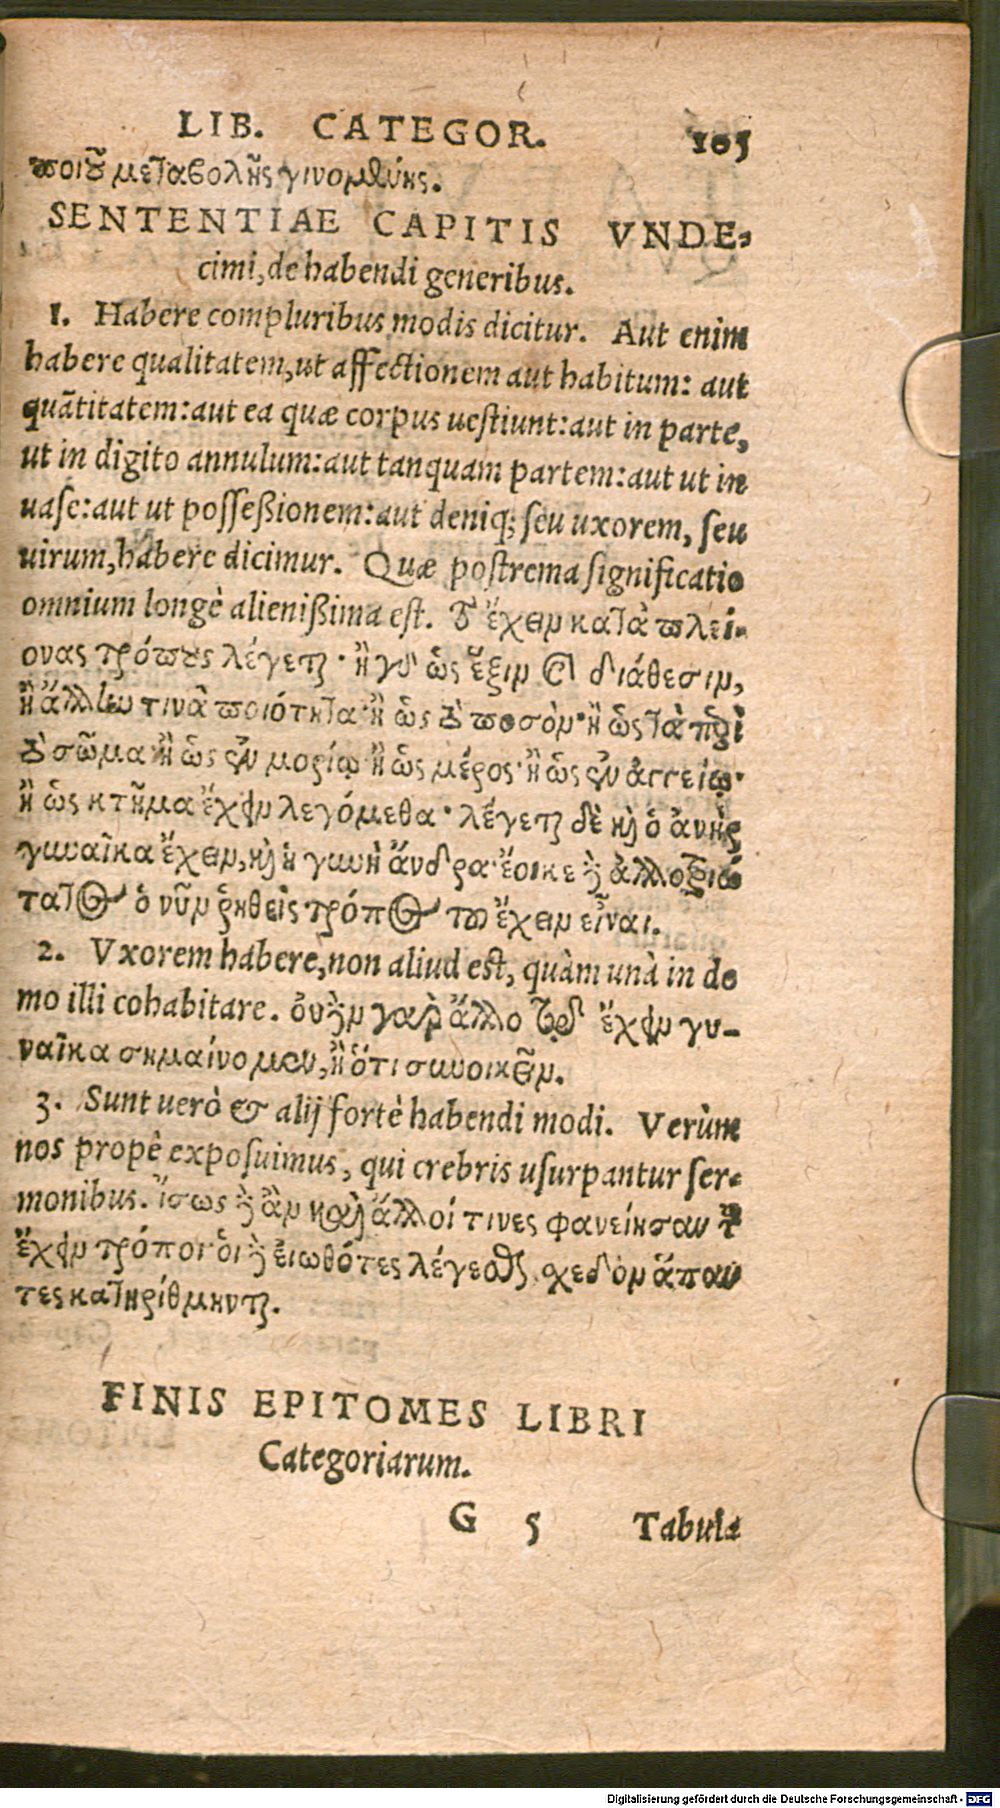 LIB. CATEGOR. 105
ποιοῦ μεταβολῆς γινομένης.
SENTENTIAE CAPITIS VNDE-
cimi, de habendi generibus.
1. Habere compluribus modis dicitur. Aut enim
habere qualitatem, ut affectionem aut habitum: aut
quãtitatem: aut ea quæ corpus uestiunt: aut in parte,
ut in digito annulum: aut tanquam partem: aut ut in
uase: aut ut posseßionem: aut deniq; seu uxorem, seu
uirum, habere dicimur. Quæ postrema significatio
omnium longè alienißima est. τὸ ἔχειν κατὰ πλεί-
ονας τρόπους λέγεται· ἢ γὰρ ὡς ἕξιν καὶ διάθεσιν,
ἢ ἄλλην τινὰ ποιότητα· ἢ ὡς τὸ ποσὸν· ἢ ὡς τὰ περὶ
τὸ σῶμα· ἢ ὡς ἐν μορίῳ· ἢ ὡς μέρος· ἢ ὡς ἐν ἀγγείῳ·
ἢ ὡς κτῆμα ἔχειν λεγόμεθα· λέγεται δὲ καὶ ὁ ἀνὴρ
γυναῖκα ἔχειν, καὶ ἡ γυνὴ ἄνδρα· ἔοικε δὲ ἀλλοτριώ
τατος ὁ νῦν ῥηθεὶς τρόπος τοῦ ἔχειν εἶναι.
2. Vxorem habere, non aliud est, quàm unà in do
mo illi cohabitare. οὐδὲν γὰρ ἄλλο τῷ ἔχειν γυ-
ναῖκα σημαίνομεν, ἢ ὅτι συνοικεῖν.
3. Sunt uerò & alij fortè habendi modi. Verùm
nos propè exposuimus, qui crebris usurpantur ser-
monibus. ἴσως δὲ ἂν καὶ ἄλλοί τινες φανείησαν τοῦ
ἔχειν τρόποι· οἱ δὲ εἰωθότες λέγεσθαι σχεδὸν ἅπαν
τες κατηρίθμηνται.
FINIS EPITOMES LIBRI
Categoriarum.
G 5 Tabula
Digitalisierung gefördert durch die Deutsche Forschungsgemeinschaft - DFG